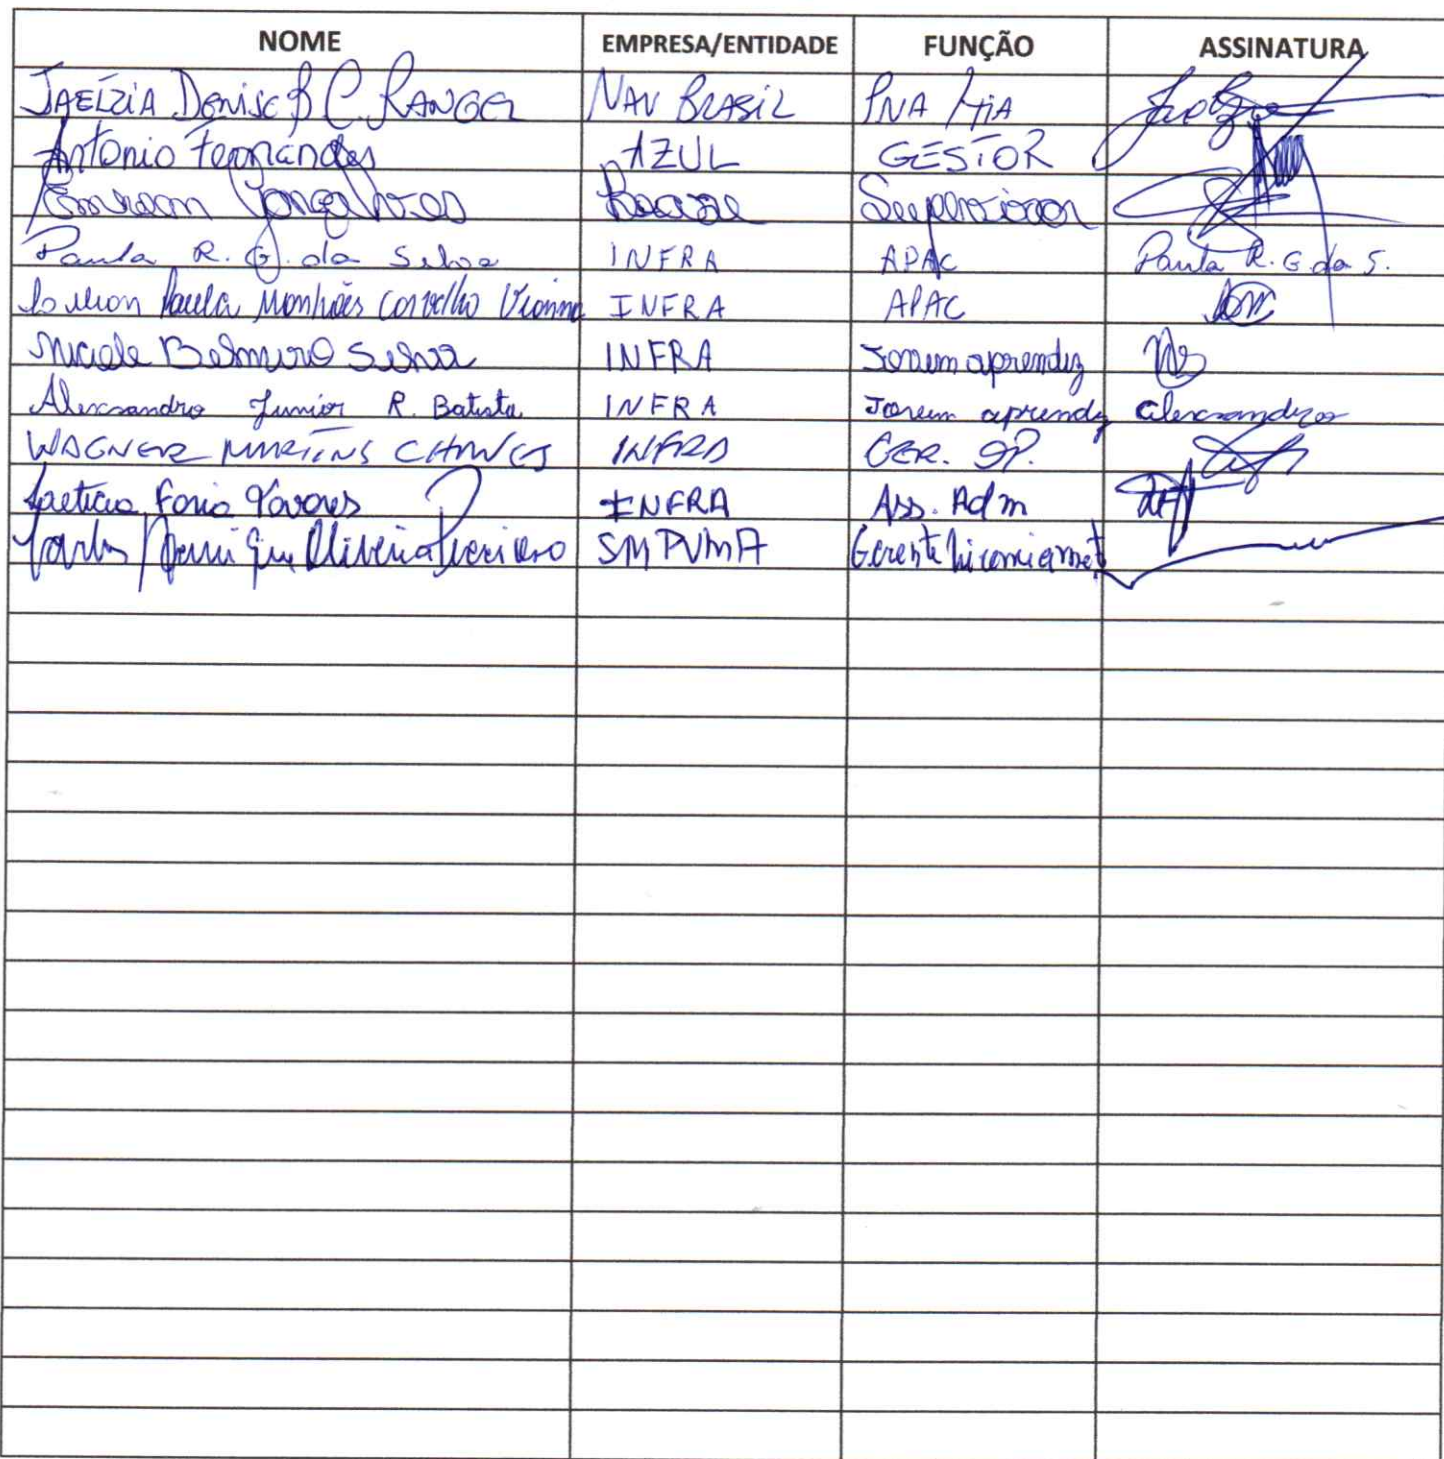 NOME EMPRESA/ENTIDADE FUNÇÃO ASSINATURA
JAELZIA Denise B C. RANGEL NAV BRASIL PNA
Antonio Fernandes AZUL GESTOR
Gonçalves Supervisor
Paula R. G. da Silva INFRA APAC Paula R. G da S.
Paula Carvalho Vianna INFRA APAC
Belmiro Silva INFRA Jovem aprendiz
Alexsandro Junior R. Batista INFRA Jovem aprendiz Alexsandro
WAGNER MARTINS CHAVES INFRA GER. OP.
Laeticia Faria Tavares INFRA Ass. Adm
Oliveira SMPUMA Gerente